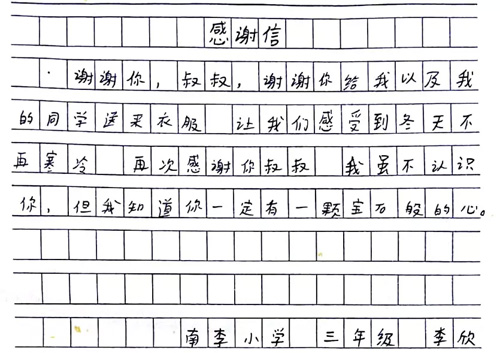 感谢信
谢谢你，叔叔，谢谢你给我以及我
的同学送来衣服 让我们感受到冬天不
再寒冷 再次感谢你叔叔 我虽不认识
你，但我知道你一定有一颗宝石般的心。
南李小学 三年级 李欣